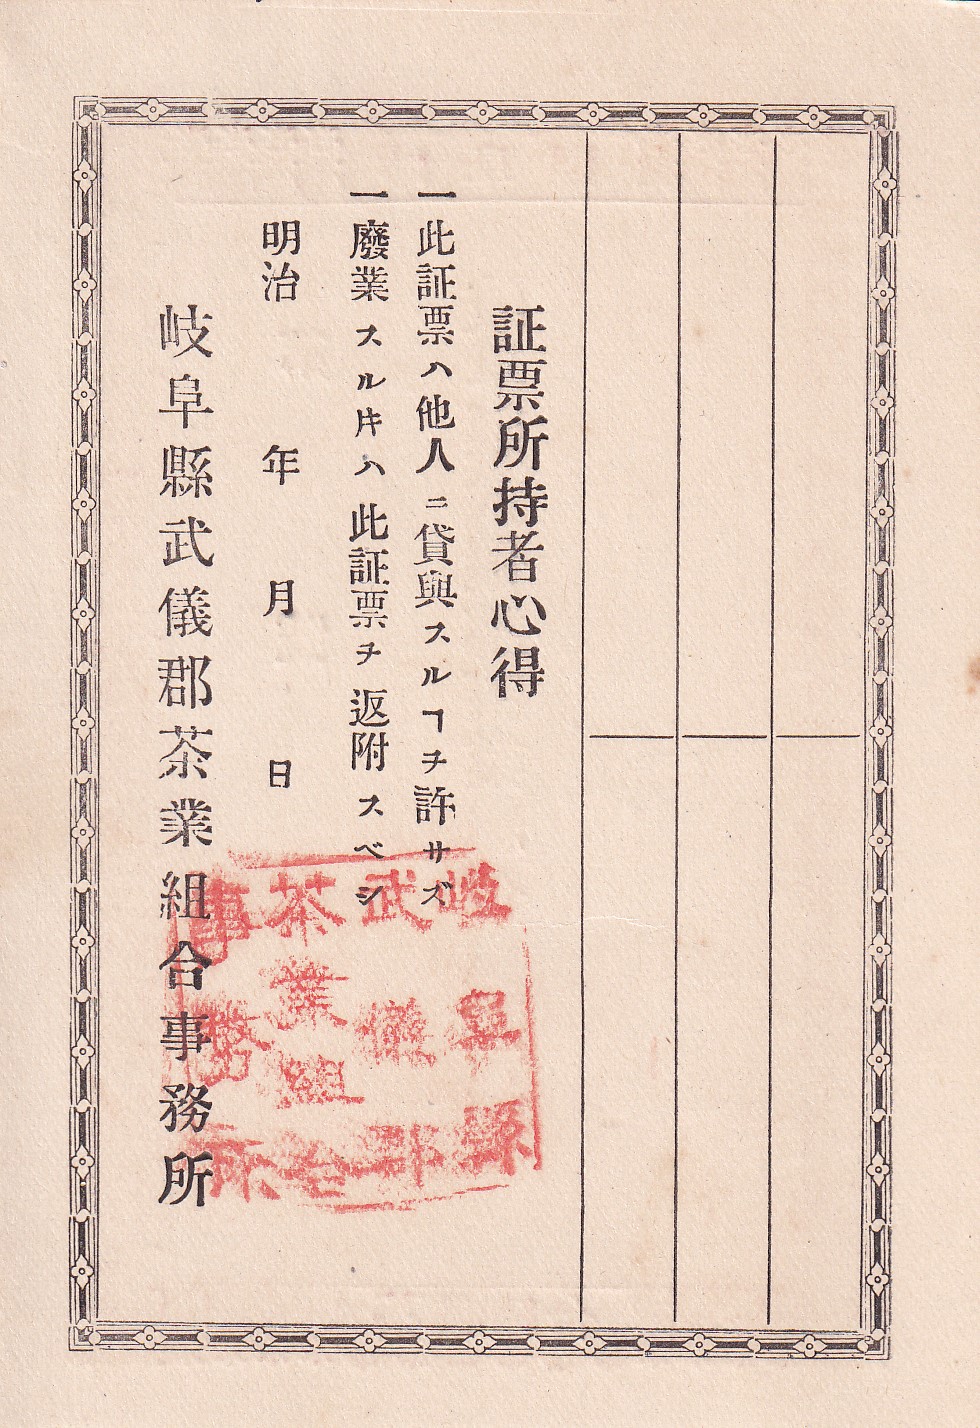 証票所持者心得
一此証票ハ他人ニ貸與スルヿヲ許サズ
一廢業スルキハ此証票ヲ返附スベシ
明治 年 月 日
岐阜縣武儀郡茶業組合事務所
岐阜縣
武儀郡
茶業組合
事務所